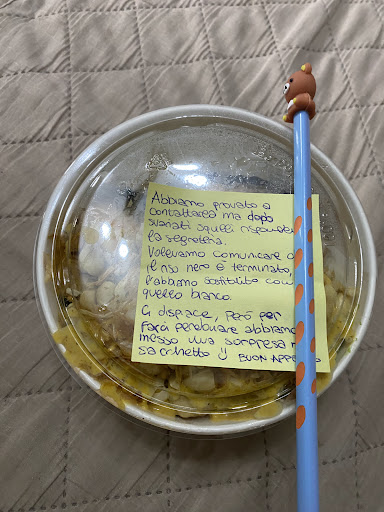 Abbiamo provato a
contattarla ma dopo
svariati squilli
la segreteria.
Volevamo comunicare
il riso nero è terminato,
l'abbiamo sostituito con
quello bianco.
Ci dispiace, però per
farci perdonare abbiamo
messo una sorpresa
sacchetto BUON